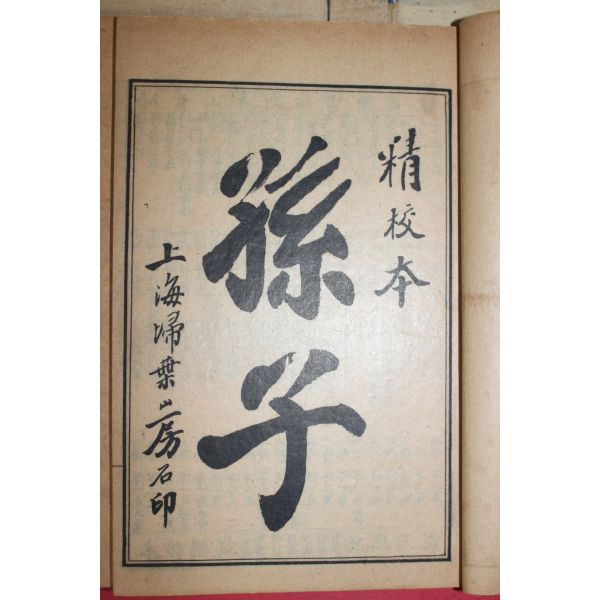 精校本
孫子
上海埽葉山房石印